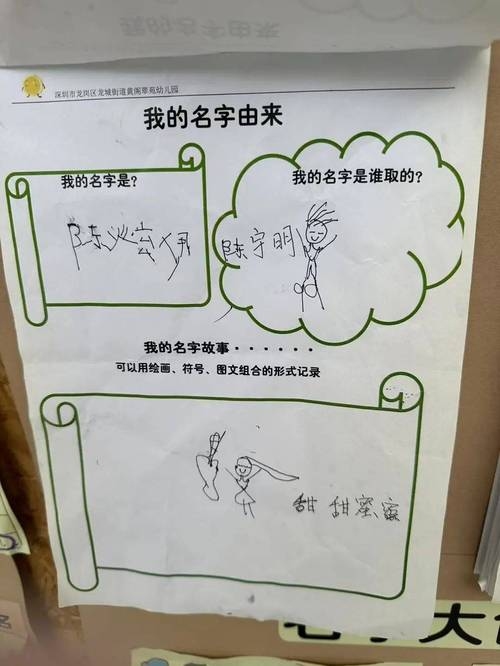 深圳市龙岗区龙城街道黄阁翠苑幼儿园
我的名字由来
我的名字是?
我的名字是谁取的?
陈
陈宇明
我的名字故事······
可以用绘画、符号、图文组合的形式记录
甜甜蜜蜜
名字大